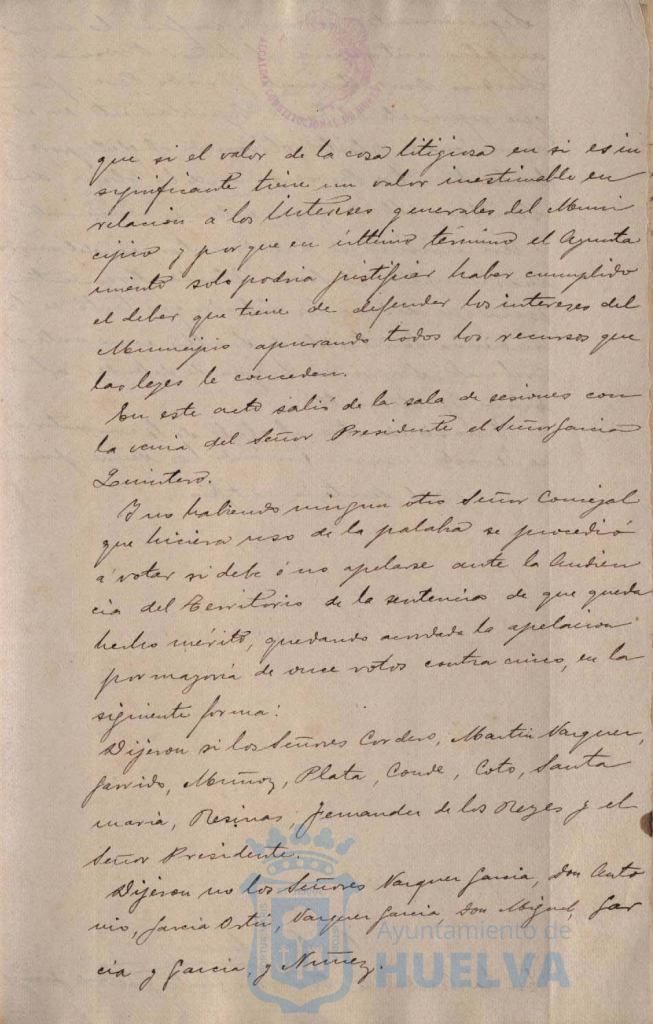 que si el valor de la cosa litigiosa en si es in
significante tiene un valor inestimable en
relacion á los intereses generales del Muni
cipio y por que en último término el Ayunta
miento solo podria justificar haber cumplido
el deber que tiene de defender los intereses del
Municipio apurando todos los recursos que
las leyes le conceden.
En este acto salió de la sala de sesiones con
la venia del Señor Presidente el Señor Garcia
Quintero.
Y no habiendo ningun otro Señor Concejal
que hiciera uso de la palabra se procedió
á votar si debe ó no apelarse ante la Audien
cia del Territorio de la sentencia de que queda
hecho mérito, quedando acordada la apelacion
por mayoría de once votos contra cinco, en la
siguiente forma:
Dijeron si los Señores Cordero, Martin Vazquez,
Garrido, Muñoz, Plata, Conde, Coto, Santa
maria, Resinas, Fernandez de los Reyes y el
Señor Presidente.
Dijeron no los Señores Vazquez Garcia, Don Anto
nio, Garcia Ortiz, Vazquez Garcia, Don Miguel, Gar
cia y Garcia, y Nuñez.
Ayuntamiento de
HUELVA